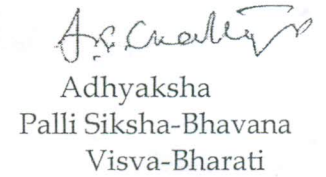 Adhyaksha
Palli Siksha-Bhavana
Visva-Bharati